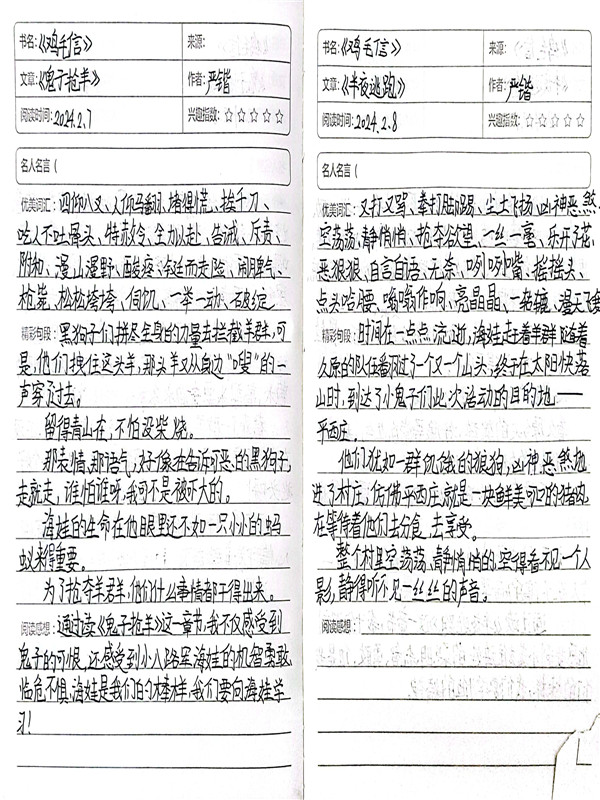 书名:《鸡毛信》
来源:
文章:《鬼子抢羊》
作者:严锴
阅读时间:2024.2.7
兴趣指数:☆☆☆☆☆
名人名言(
优美词汇:四仰八叉、人仰马翻、堵得慌、挨千刀、
吃人不吐骨头、特赦令、全力以赴、告诫、斥责、
附和、漫山遍野、酸疼、铤而走险、闹脾气、
枪毙、松松垮垮、伺饥、一举一动、破绽
精彩句段:黑狗子们拼尽全身的力量去拦截羊群,可
是,他们拽住这头羊,那头羊又从身边“嗖”的一
声穿了过去。
留得青山在,不怕没柴烧。
那表情、那语气,好像在告诉可恶的黑狗子,
走就走,谁怕谁呀,我可不是被吓大的。
海娃的生命在他眼里还不如一只小小的蚂
蚁来得重要。
为了抢夺羊群,他们什么事情都干得出来。
阅读感想:通过读《鬼子抢羊》这一章节,我不仅感受到
鬼子的可恨,还感受到小八路军海娃的机智勇敢,
临危不惧,海娃是我们的榜样,我们要向海娃学
习!
书名:《鸡毛信》
来源:
文章:《半夜逃跑》
作者:严锴
阅读时间:2024.2.8
兴趣指数:☆☆☆☆☆
名人名言(
优美词汇:又打又骂、拳打脚踢、尘土飞扬、凶神恶煞、
空荡荡、静悄悄、抢夺欲望、一丝一毫、乐开了花、
恶狠狠、自言自语、无奈、咧咧嘴、摇摇头、
点头哈腰、嗡嗡作响、亮晶晶、一轱辘、漫天飞舞
精彩句段:时间在一点点流逝,海娃赶着羊群随着
久原的队伍翻过了一个又一个山头,终于在太阳快落
山时,到达了小鬼子们此次活动的目的地——
平西庄.
他们犹如一群饥饿的狼狗,凶神恶煞地
进了村庄,仿佛平西庄就是一块鲜美可口的猪肉,
在等待着他们去分食,去享受。
整个村里空荡荡、静悄悄的,空得看不见一个人
影,静得听不见一丝丝的声音。
阅读感想: